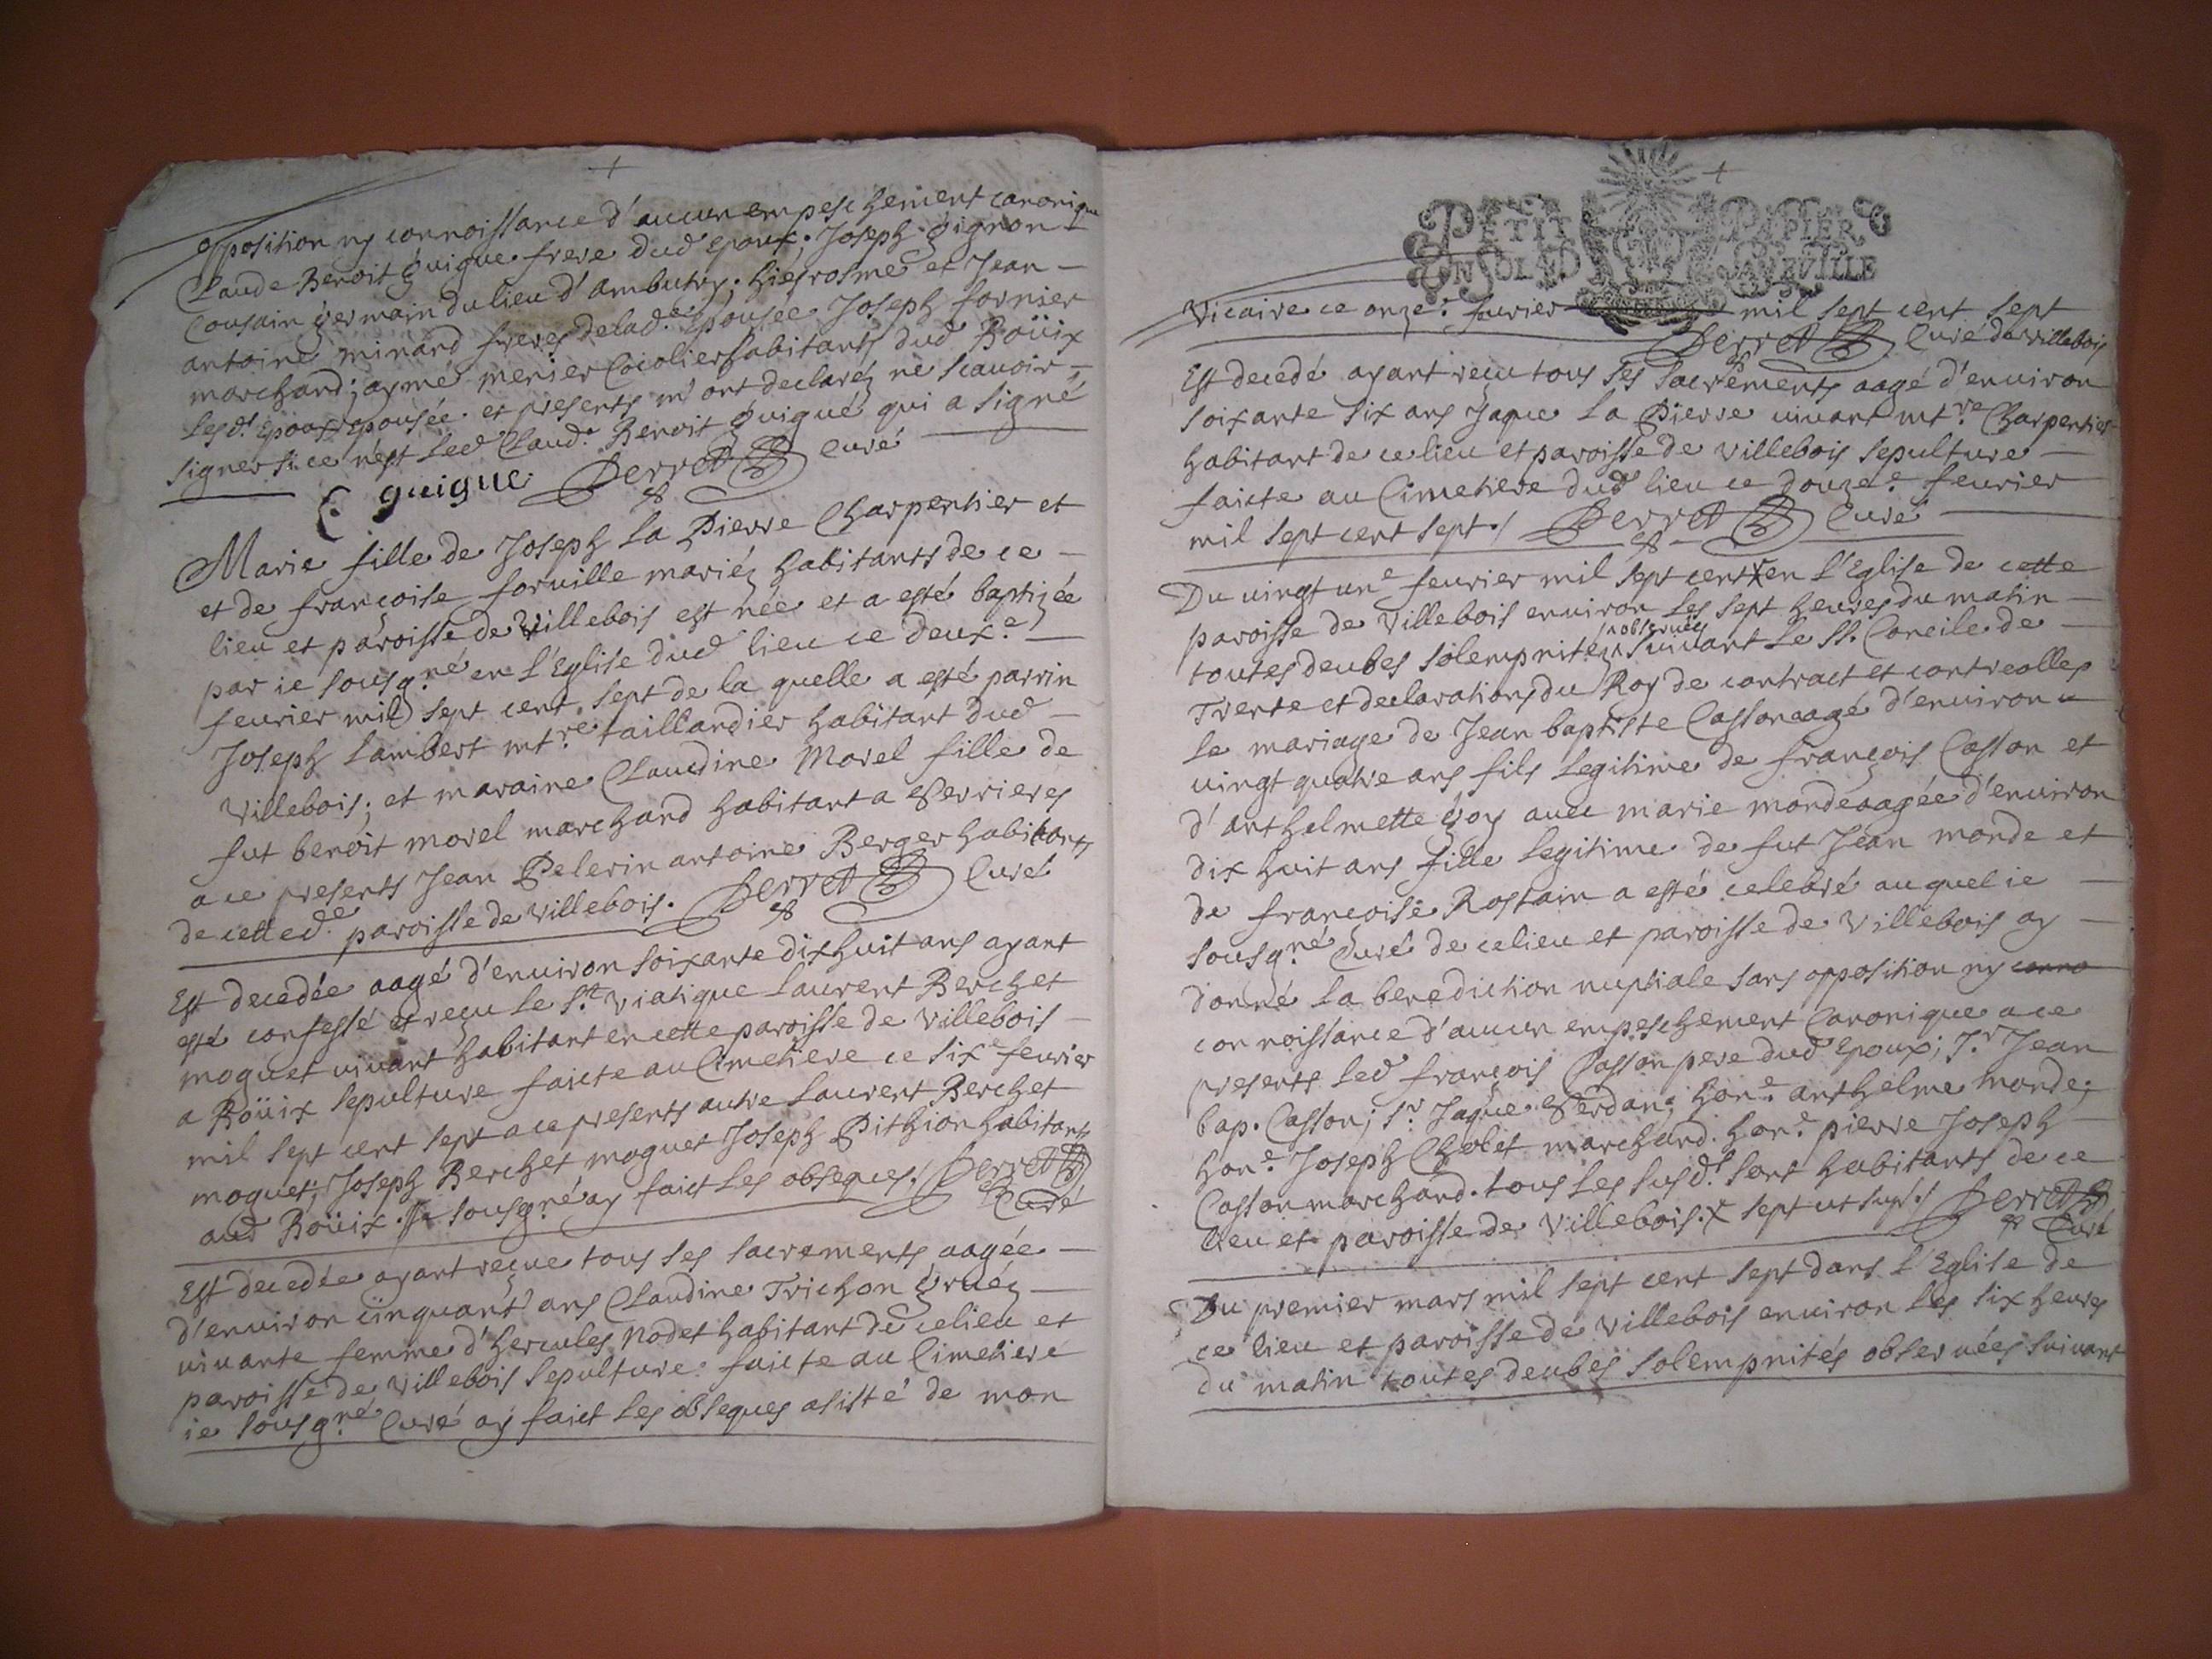 opposition ny connoissance d'aucun empeschement canonique
Claude Benoit Guigue frere dud epoux; Joseph Gignon
Cousain germain du lieu d'ambutry; hierosme et Jean
antoine minard freres de lad.e Epousée Joseph fornier
marchand; aymé menier Cocolier habitants dud Roüix
lesd.ts Epoux Epousée et presents m'ont declaréz ne scauoir
signer si ce n'est led Claud.e Benoit Guigue qui a signé
C guigue Perret Curé
Marie fille de Joseph la Pierre Charpentier et
et de françoise foruille mariéz habitants de ce
lieu et paroisse de Villebois est née et a esté baptizée
par ie sousg.né en l'Eglise dud lieu ce deux.e
feurier mil sept cent sept de la quelle a esté parrin
Joseph Lambert mt.re taillandier habitant dud
Villebois; et maraine Claudine Morel fille de
fut benoit morel marchand habitant a Serrieres
a ce presents Jean Pelerin antoine Berger habitants
de cette d.e paroisse de Villebois. Perret Curé
Est decedée aagé d'enuiron soixante dixhuit ans ayant
esté confessé et reçu le S.t Viatique Laurent Berchet
moguet uiuant habitant en cette paroisse de Villebois
a Roüix sepulture faicte au Cimetiere ce six.e feurier
mil sept cent sept a ce presents autre Laurent Berchet
moguet; Joseph Berchet moguet Joseph Pithion habitants
aud Roüix. Je sousg.né ay faict les obseques. Perret
Curé
Est decedée ayant reçue tous ses sacrements aagée
d'enuiron cinquant' ans Claudine Trichon Gruéz
uiuante femme d'hercules Nodet habitant de ce lieu et
paroisse de Villebois sepulture faicte au Cimetiere
ie sousg.né Curé ay faict les obseques asisté de mon
PETIT PAPIER
UN SOL 4 D LA FEUILLE
Vicaire ce onze.e feurier mil sept cent sept
Perret Curé de Villebois
Est decedé ayant reçu tous ses sacrements aagé d'enuiron
soixante six ans Jaque la Pierre uiuant mt.re Charpentier
habitant de ce lieu et paroisse de Villebois sepulture
faicte au Cimetiere dud lieu ce douze.e feurier
mil sept cent sept./ Perret Curé
Du uingt un.e feurier mil sept cent x en l'Eglise de cette
paroisse de Villebois enuiron les sept heures du matin
toutes deubes solempnitéz obseruées suiuant le St. Concile de
Trente et declarations du Roy de contract et contreolles
le mariage de Jean baptiste Casson aagé d'enuiron
uingt quatre ans fils legitime de françois Casson et
d'anthelmette Goy auec marie monde aagée d'enuiron
dix huit ans fille legitime de fut Jean monde et
de françoise Rostain a esté celebré au quel ie
sousg.né Curé de ce lieu et paroisse de Villebois ay
donné la benediction nuptiale sans opposition ny conno
connoissance d'aucun empeschement Canonique a ce
presents led françois Casson pere dud Epoux; S.r Jean
bap. Casson; S.r Jaque Serdan; hon.e anthelme monde;
hon.e Joseph Cholet marchand. hon.e pierre Joseph
Casson marchand. tous les susd.ts sont habitants de ce
lieu et paroisse de Villebois. x sept ut sup./ Perret
Curé
Du premier mars mil sept cent sept dans l'Eglise de
ce lieu et paroisse de Villebois enuiron les six heures
du matin toutes deubes solempnités obseruées suiuant